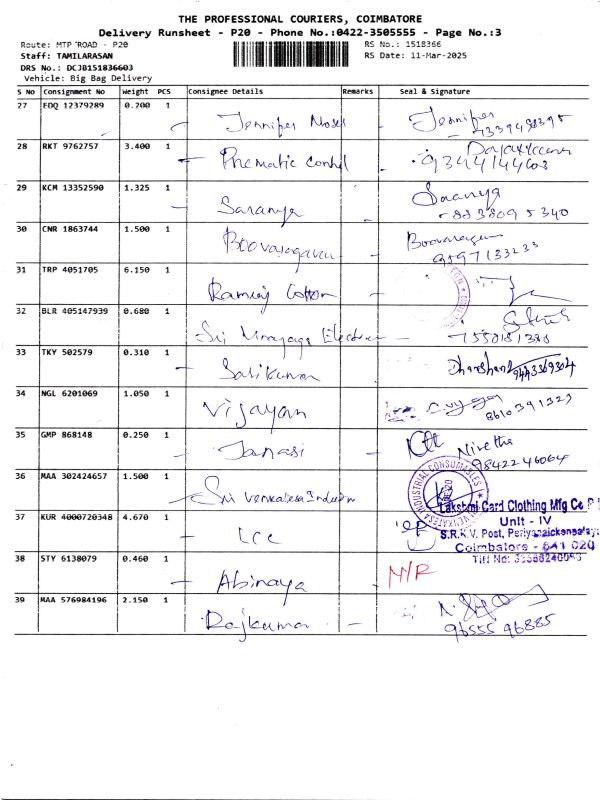 THE PROFESSIONAL COURIERS, COIMBATORE
Delivery Runsheet - P20 - Phone No.:0422-3505555 - Page No.:3
Route: MTP ROAD - P20
RS No.: 1518366
Staff: TAMILARASAN
RS Date: 11-Mar-2025
DRS No.: DCJB151836603
Vehicle: Big Bag Delivery
S No Consignment No Weight PCS Consignee Details Remarks Seal & Signature
27 EDQ 12379289 0.200 1
Jennifer Jennifer
28 RKT 9762757 3.400 1
Pnematic
29 KCM 13352590 1.325 1
Saranya Saranya
8838095340
30 CNR 1863744 1.500 1
Boovaragavan
9597133233
31 TRP 4051705 6.150 1
Ramraj Cotton
32 BLR 405147939 0.680 1
Sri Vinayaga
33 TKY 502579 0.310 1
Sasikumar
34 NGL 6201069 1.050 1
Vijayan
8610391323
35 GMP 868148 0.250 1
Janasi Nivetha
9842246064
36 MAA 302424657 1.500 1
Sri Venkatesa
INDUSTRIAL CONSUMABLES
Lakshmi Card Clothing Mfg Co P
37 KUR 4000720348 4.670 1
LCC
Unit - IV
S.R.K.V. Post, Periyanaickenpalay
Coimbatore - 641 020
38 STY 6138079 0.460 1
Abinaya N/R
39 MAA 576984196 2.150 1
Rajkumar
96555 96885